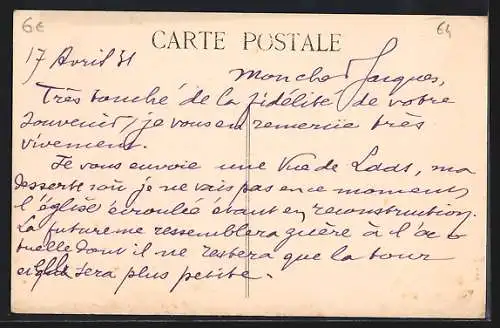 6€
64
CARTE POSTALE
17 Avril 31
Mon cher Jacques,
Très touché de la fidélité de votre
souvenir, je vous en remercie très
vivement.
Je vous envoie une vue de Loos, ma
desserte où je ne vais pas en ce moment
l'église écroulée étant en reconstruction.
La future ne ressemblera guère à l'ac
tuelle dont il ne restera que la tour
et qui sera plus petite.